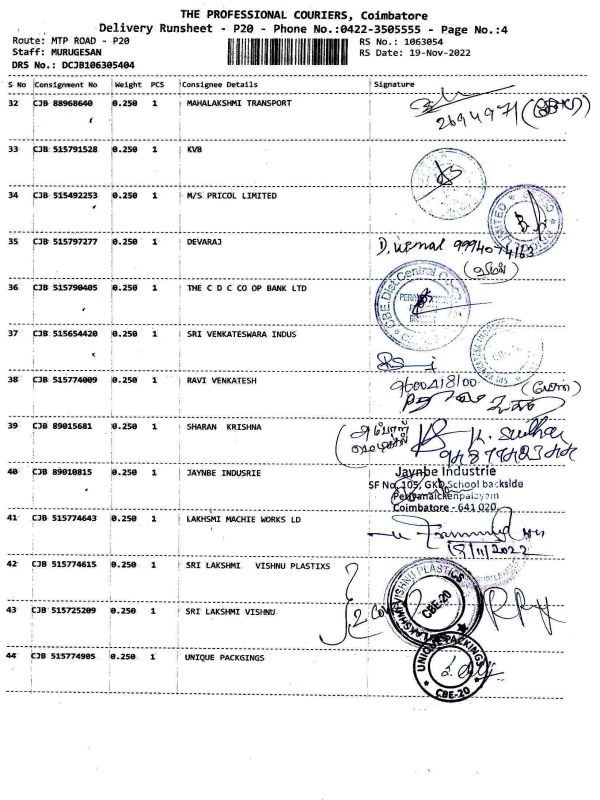 THE PROFESSIONAL COURIERS, Coimbatore
Delivery Runsheet - P20 - Phone No.:0422-3505555 - Page No.:4
Route: MTP ROAD - P20
RS No.: 1063054
Staff: MURUGESAN
RS Date: 19-Nov-2022
DRS No.: DCJB106305404
S No Consignment No Weight PCS Consignee Details Signature
32 CJB 88968640 0.250 1 MAHALAKSHMI TRANSPORT
2694971
33 CJB 515791528 0.250 1 KVB
34 CJB 515492253 0.250 1 M/S PRICOL LIMITED
35 CJB 515797277 0.250 1 DEVARAJ D. 9994074163
36 CJB 515790405 0.250 1 THE C D C CO OP BANK LTD
CBE.Dist.Central
37 CJB 515654420 0.250 1 SRI VENKATESWARA INDUS
38 CJB 515774009 0.250 1 RAVI VENKATESH 9600418100
39 CJB 89015681 0.250 1 SHARAN KRISHNA
40 CJB 89010815 1 JAYNBE INDUSRIE
0.250
Jaynbe Industrie
SF No. 105, GKD School backside
Periyanaickenpalayam
Coimbatore - 641 020
41 CJB 515774643 0.250 1 LAKHSMI MACHIE WORKS LD
18/11/2022
42 CJB 515774615 0.250 1 SRI LAKSHMI VISHNU PLASTIXS
LAKSHMI VISHNU PLASTICS
CBE-20
43 CJB 515725209 0.250 1 SRI LAKSHMI VISHNU
44 CJB 515774905 0.250 1 UNIQUE PACKGINGS
UNIQUE PACKINGS
CBE-20